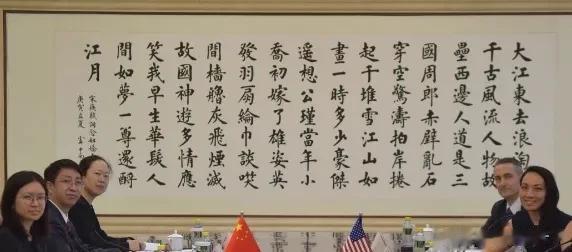 大江東去浪淘
千古風流人物故
壘西邊人道是三
國周郎赤壁亂石
穿空驚濤拍岸捲
起千堆雪江山如
畫一時多少豪傑
遙想公瑾當年小
喬初嫁了雄姿英
發羽扇綸巾談咲
間檣艣灰飛煙滅
故國神遊多情應
笑我早生華髮人
間如夢一尊還酹
江月
宋蘇軾詞念奴嬌